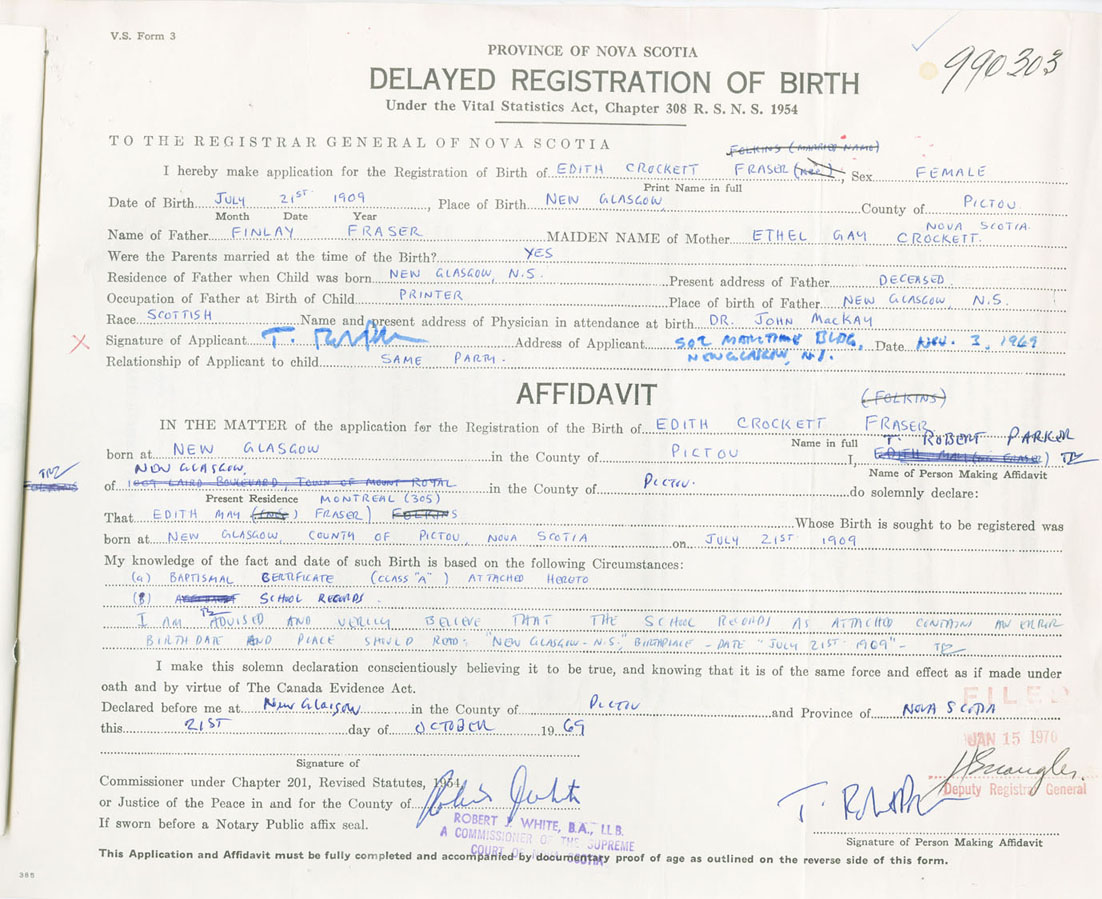 V.S. Form 3
990303
PROVINCE OF NOVA SCOTIA
DELAYED REGISTRATION OF BIRTH
Under the Vital Statistics Act, Chapter 308 R. S. N. S. 1954
TO THE REGISTRAR GENERAL OF NOVA SCOTIA
FOLKINS (MARRIED NAME)
I hereby make application for the Registration of Birth of EDITH CROCKETT FRASER (née), Sex FEMALE
Print Name in full
Date of Birth JULY 21ST 1909, Place of Birth NEW GLASGOW County of PICTOU
Month Date Year
NOVA SCOTIA
Name of Father FINLAY FRASER MAIDEN NAME of Mother ETHEL GAY CROCKETT.
Were the Parents married at the time of the Birth? YES
Residence of Father when Child was born NEW GLASGOW, N.S. Present address of Father DECEASED
Occupation of Father at Birth of Child PRINTER Place of birth of Father NEW GLASGOW N.S.
Race SCOTTISH Name and present address of Physician in attendance at birth DR. JOHN MACKAY
X Signature of Applicant Address of Applicant 502 MARITIME BLDG, Date NOV. 3, 1969
NEW GLASGOW, N.S.
Relationship of Applicant to child SAME PARTY.
AFFIDAVIT
(FOLKINS)
IN THE MATTER of the application for the Registration of the Birth of EDITH CROCKETT FRASER
Name in full T. ROBERT PARKER
born at NEW GLASGOW in the County of PICTOU I, EDITH MAY (née FRASER)
Name of Person Making Affidavit
NEW GLASGOW,
of 1069 LAIRD BOULEVARD, TOWN OF MOUNT ROYAL in the County of PICTOU. do solemnly declare:
Present Residence MONTREAL (305)
That EDITH MAY (née) FRASER) FOLKINS Whose Birth is sought to be registered was
born at NEW GLASGOW, COUNTY OF PICTOU, NOVA SCOTIA on JULY 21ST 1909
My knowledge of the fact and date of such Birth is based on the following Circumstances:
(a) BAPTISMAL CERTIFICATE (CLASS "A") ATTACHED HERETO
(B) SCHOOL RECORDS.
I AM ADVISED AND VERILY BELIEVE THAT THE SCHOOL RECORDS AS ATTACHED CONTAIN AN ERROR
BIRTHDATE AND PLACE SHOULD READ: "NEW GLASGOW - N.S.", BIRTHPLACE - DATE "JULY 21ST 1909" -
I make this solemn declaration conscientiously believing it to be true, and knowing that it is of the same force and effect as if made under
oath and by virtue of The Canada Evidence Act.
FILED
Declared before me at New Glasgow in the County of PICTOU and Province of NOVA SCOTIA
this 21ST day of OCTOBER 1969
JAN 15 1970
Signature of
Commissioner under Chapter 201, Revised Statutes, 1954,
Deputy Registrar General
or Justice of the Peace in and for the County of
ROBERT J. WHITE, B.A., LL.B.
If sworn before a Notary Public affix seal.
A COMMISSIONER OF THE SUPREME
COURT OF NOVA SCOTIA
Signature of Person Making Affidavit
This Application and Affidavit must be fully completed and accompanied by documentary proof of age as outlined on the reverse side of this form.
385